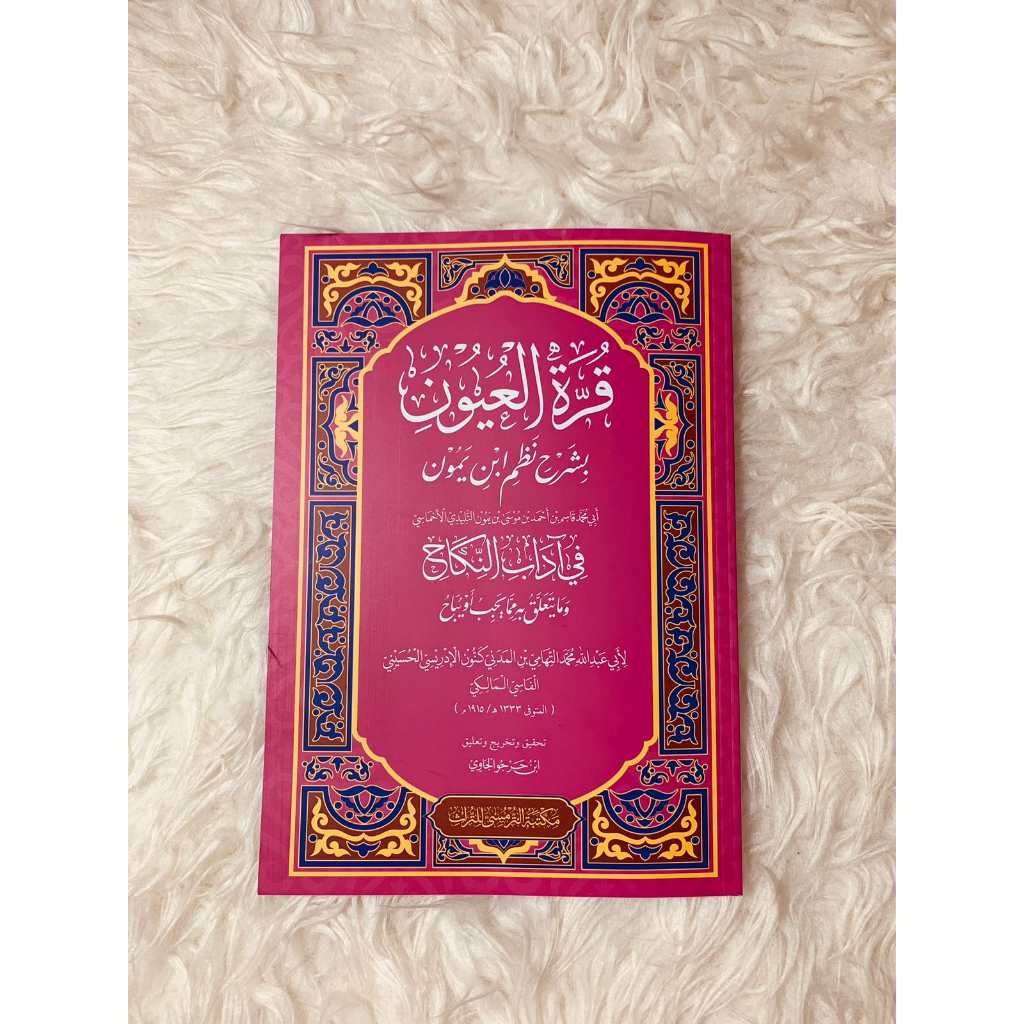 قُرَّةُ الْعُيُونِ
بِشَرْحِ نَظْمِ ابْنِ يَمُون
أَبِي مُحَمَّد قَاسِم بْن أَحْمَد بْن مُوسَى بْن يَمُون التَّلِيدِيّ الْأَخْمَاسِيّ
فِي آدَابِ النِّكَاحِ
وَمَا يَتَعَلَّقُ بِهِ مِمَّا يَجِبُ أَوْ يُبَاحُ
لِأَبِي عَبْدِ اللهِ مُحَمَّد التِّهَامِيّ بْنِ الْمَدَنِيّ كَنُّون الْإِدْرِيسِيّ الْحُسَيْنِيّ
الْفَاسِيّ الْمَالِكِيّ
( المتوفى ١٣٣٣ هـ / ١٩١٥ م )
تحقيق وتخريج وتعليق
ابن حرجو الجاوي
مكتبة الترمسي للتراث